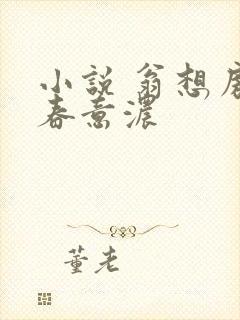 小说 翁想
春意濃
董老